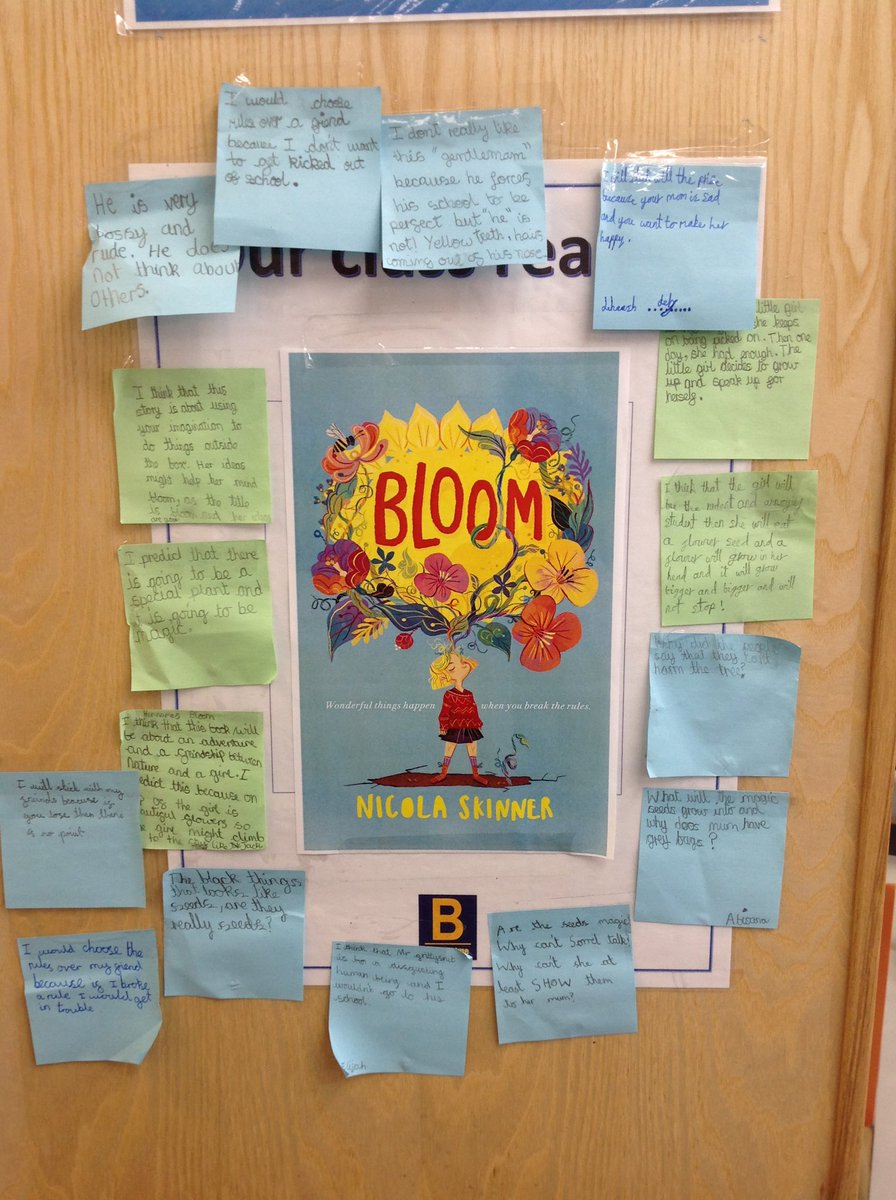 I would choose
rules over a friend
because I don't want
to get kicked out
of school.
I dont really like
this "gentlemam"
because he forces
his school to be
perfect but "he" is
not! Yellow teeth, hair
coming out of his nose
will the
because your mom is sad
and you want to make her
happy.
He is very
bossy and
rude. He does
not think about
others.
our class rea
little girl
she keeps
on being picked on. Then one
day, she had enough. The
little girl decides to grow
up and speak up for
herself.
I think that this
story is about using
your imagination to
do things outside
the box. Her ideas
might help her mind
bloom, as the title
is bloom and her ideas
I think that the girl will
be the and
student then she will eat
a flower seed and a
flower will grow in her
head and it will grow
bigger and bigger and will
not stop!
I predict that there
is going to be a
special plant and
it is going to be
magic.
BLOOM
Wonderful things happen when you break the rules.
NICOLA SKINNER
Why did the people
say that they can't
harm the tree?
Bloom
I think that this book will
be about an adventure
and a friendship between
Nature and a girl. I
predict this because on
of the girl is
beautiful flowers so
girl might climb
to the like Jack
I will stick with my
friends because if
you lose them there
is no point
What will the magic
seeds grow into and
why does mum have
grey bags?
Abisana
The black things
that looks like
seeds, are they
really seeds?
B
Are the seeds magic?
Why can't Sorrel talk?
Why can't she at
least SHOW them
to her mum?
I would choose the
rules over my friend
because if I broke
a rule I would get
in trouble
I think that Mr
is a disgusting
human being and I
wouldn't go to his
school.
Elijah